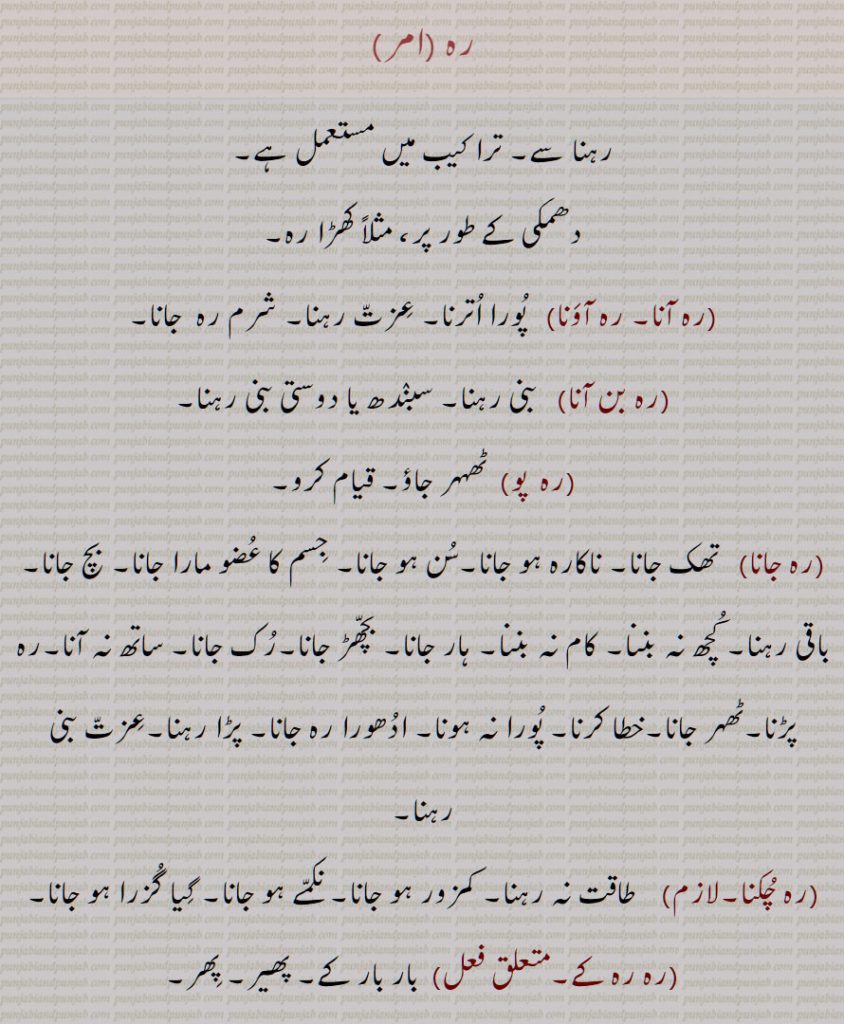 رہ (امر)
رہنا سے۔ تراکیب میں مستعمل ہے۔
دھمکی کے طور پر، مثلاً کھڑا رہ۔
(رہ آنا۔ رہ آؤنا) پُورا اُترنا۔ عِزتّ رہنا۔ شرم رہ جانا۔
(رہ بن آنا) بنی رہنا۔ سبنٛدھ یا دوستی بنی رہنا۔
(رہ پو) ٹھہر جاؤ۔ قیام کرو۔
(رہ جانا) تھک جانا۔ ناکارہ ہو جانا۔سُن ہو جانا۔ جِسم کا عُضو مارا جانا۔ بچ جانا۔
باقی رہنا۔ کُچھ نہ بننا۔ کام نہ بننا۔ ہار جانا۔ بچھّڑ جانا۔رُک جانا۔ ساتھ نہ آنا۔رہ
پڑنا۔ٹھہر جانا۔خطا کرنا۔ پُورا نہ ہونا۔ ادُھورا رہ جانا۔ پڑا رہنا۔عِزتّ بنی
رہنا۔
(رہ چُکنا۔لازم) طاقت نہ رہنا۔ کمزور ہو جانا۔نکمّے ہو جانا۔ گِیا گُزرا ہو جانا۔
(رہ رہ کے۔متعلق فعل) بار بار کے۔ پھیر۔پِھر۔
punjabiandpunjab.com